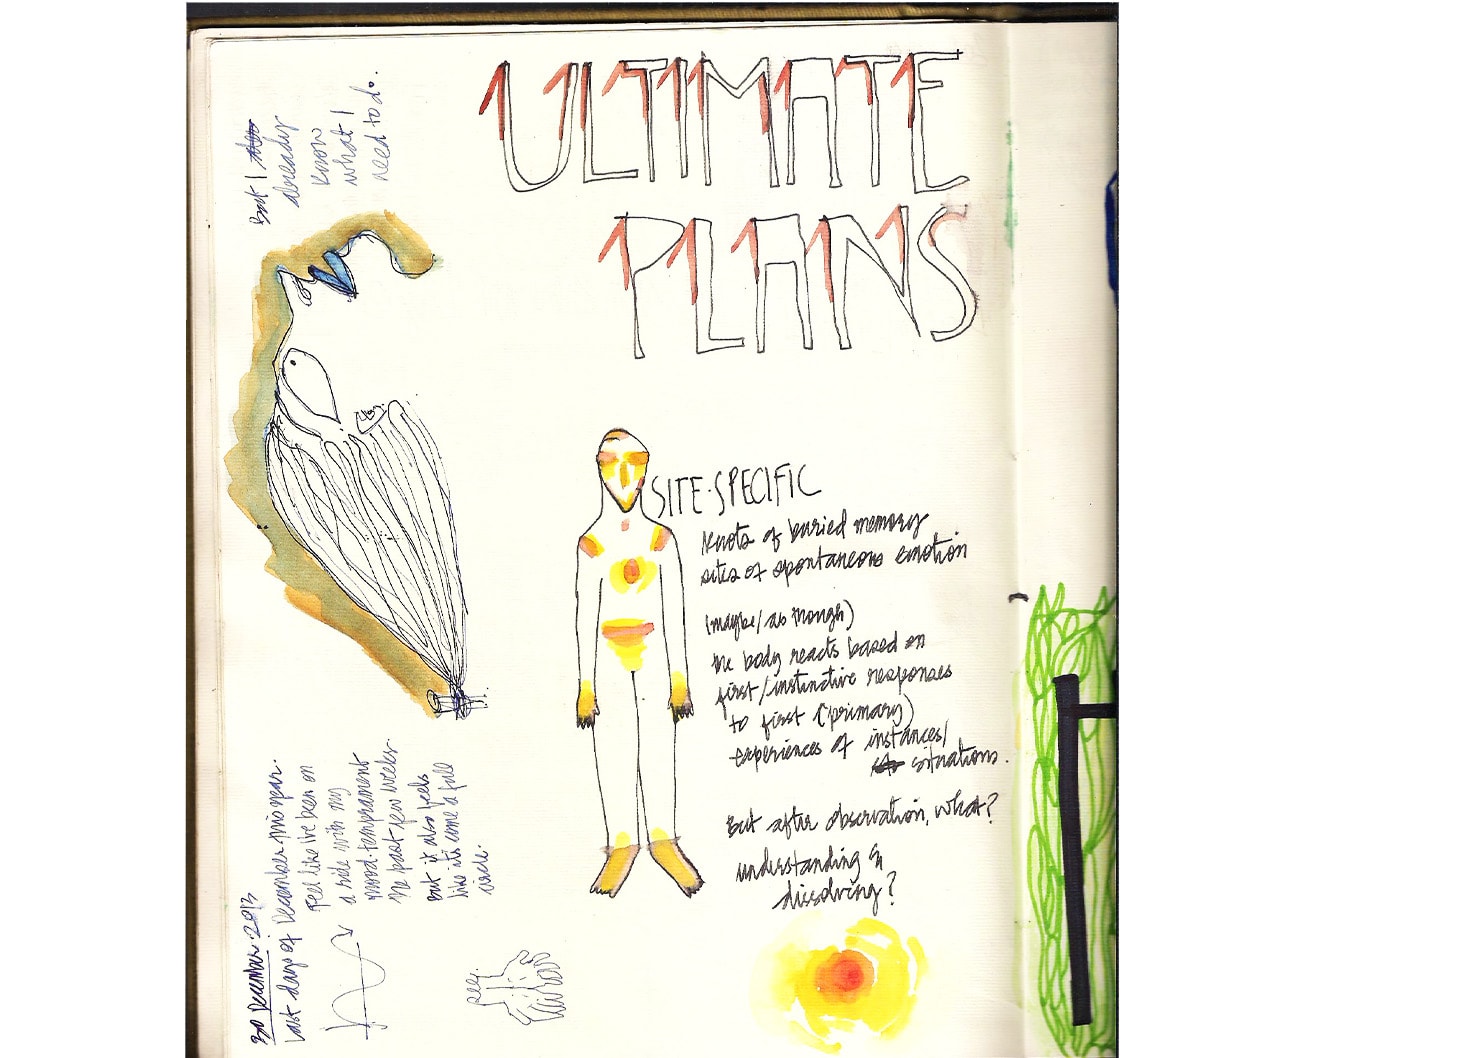 ULTIMATE
PLANS
SITE-SPECIFIC
Knots of buried memory
sites of spontaneous emotion
(maybe/as though)
the body reacts based on
first/instinctive responses
to first (primary)
experiences of instances/
situations.
But after observation, what?
understanding &
dissolving?
But I
already
know
what I
need to do.
30 December 2013
Last days of December this year.
Feel like I've been on
a ride with my
mood-temprament
the past few weeks.
But it also feels
like it's come a full
circle.